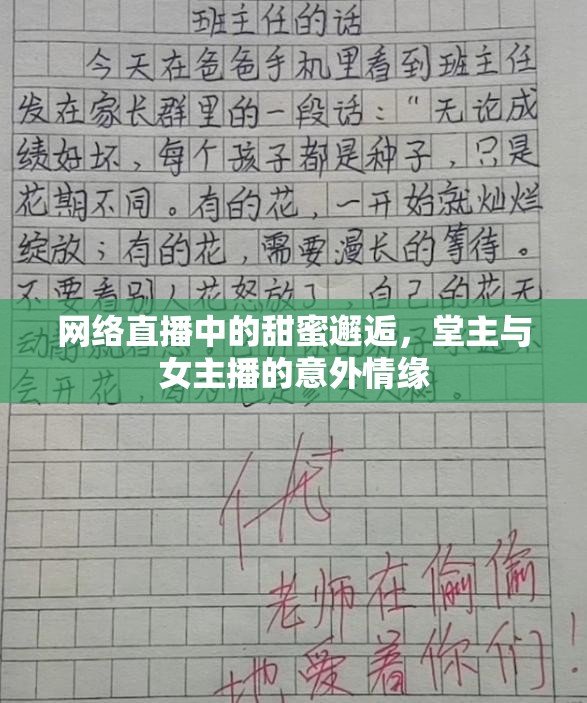 班主任的话
今天在爸爸手机里看到班主任
发在家长群里的一段话："无论成
绩好坏，每个孩子都是种子，只是
花期不同。有的花，一开始就灿烂
绽放；有的花，需要漫长的等待。
不要看别人花怒放了，自己的花无
网络直播中的甜蜜邂逅，堂主与
女主播的意外情缘
会开花，
老师在偷偷
地爱着你们！